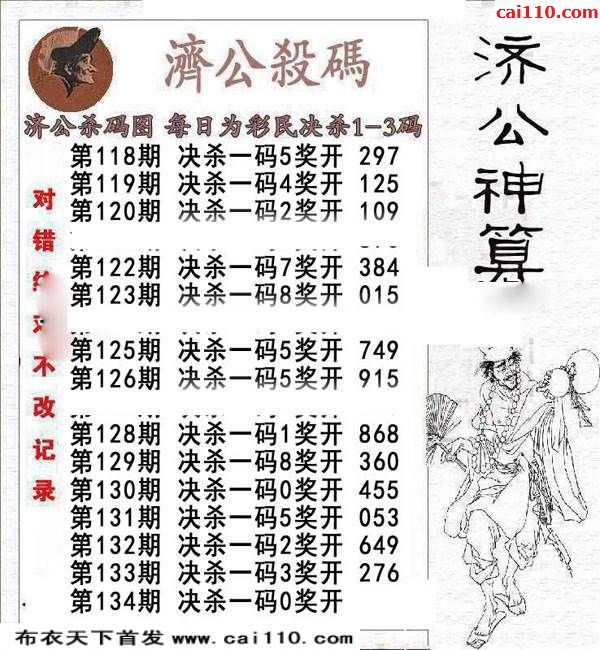 cai110.com
濟公殺碼
济公杀码图 每日为彩民决杀1-3码
第118期 决杀一码5奖开 297
第119期 决杀一码4奖开 125
第120期 决杀一码2奖开 109
第122期 决杀一码7奖开 384
第123期 决杀一码8奖开 015
第125期 决杀一码5奖开 749
第126期 决杀一码5奖开 915
第128期 决杀一码1奖开 868
第129期 决杀一码8奖开 360
第130期 决杀一码0奖开 455
第131期 决杀一码5奖开 053
第132期 决杀一码2奖开 649
第133期 决杀一码3奖开 276
第134期 决杀一码0奖开
对错
不改记录
济公神算
布衣天下首发 www.cai110.com